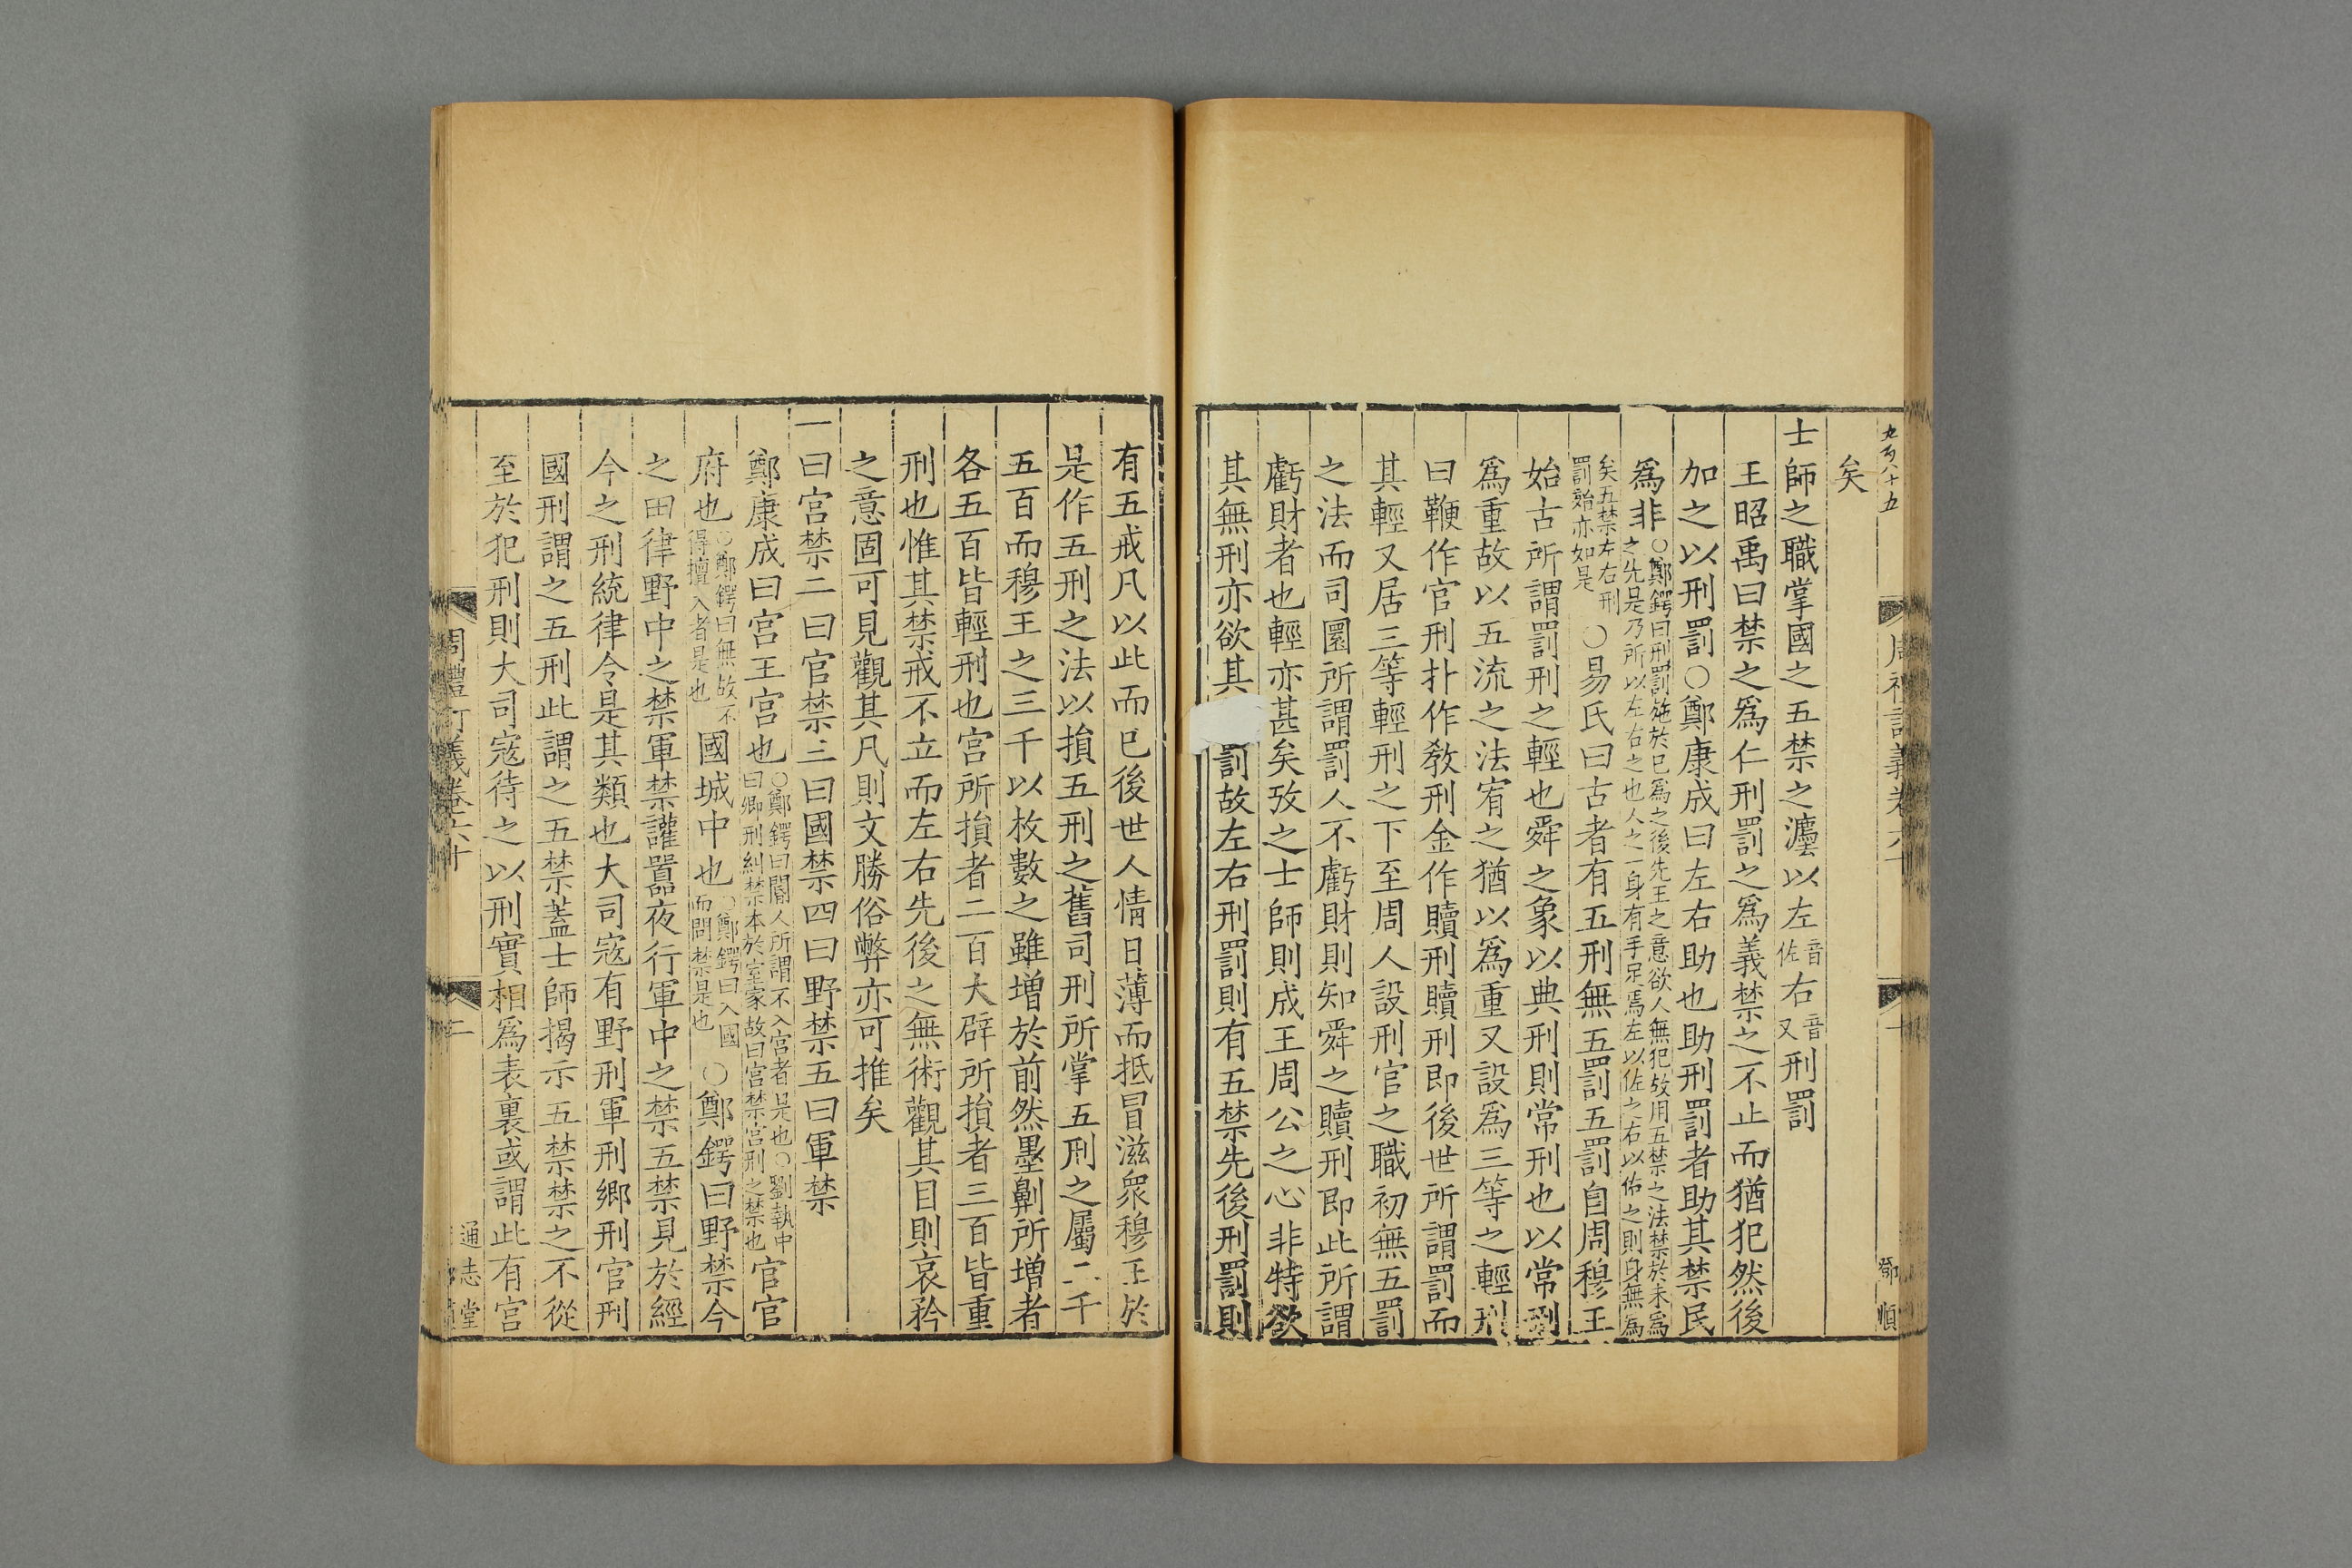 矣
士師之職掌國之五禁之灋以左音佐右音又刑罰
王昭禹曰禁之爲仁刑罰之爲義禁之不止而猶犯然後
加之以刑罰○鄭康成曰左右助也助刑罰者助其禁民
爲非○鄭鍔曰刑罰施於已爲之後先王之意欲人無犯故用五禁之法禁於未爲之先是乃所以左右之也人之一身有手足焉左以佐之右以佑之則身無爲
矣五禁左右刑罰殆亦如是○易氏曰古者有五刑無五罰五罰自周穆王
始古所謂罰刑之輕也舜之象以典刑則常刑也以常刑
爲重故以五流之法宥之猶以爲重又設爲三等之輕刑
曰鞭作官刑扑作敎刑金作贖刑贖刑即後世所謂罰而
其輕又居三等輕刑之下至周人設刑官之職初無五罰
之法而司圜所謂罰人不虧財則知舜之贖刑即此所謂
虧財者也輕亦甚矣攷之士師則成王周公之心非特欲
其無刑亦欲其罰故左右刑罰則有五禁先後刑罰則
九百八十五
周禮訂義卷六十
鄧順
有五戒凡以此而已後世人情日薄而抵冒滋眾穆王於
是作五刑之法以損五刑之舊司刑所掌五刑之屬二千
五百而穆王之三千以枚數之雖增於前然墨劓所增者
各五百皆輕刑也宮所損者二百大辟所損者三百皆重
刑也惟其禁戒不立而左右先後之無術觀其目則哀矜
之意固可見觀其凡則文勝俗弊亦可推矣
一曰宮禁二曰官禁三曰國禁四曰野禁五曰軍禁
鄭康成曰宮王宮也○鄭鍔曰閽人所謂不入宮者是也○劉執中曰鄉刑糾禁本於室家故曰宮禁宮刑之禁也官官
府也○鄭鍔曰無故不得擅入者是也國城中也○鄭鍔曰入國而問禁是也○鄭鍔曰野禁今
之田律野中之禁軍禁讙嚻夜行軍中之禁五禁見於經
今之刑統律令是其類也大司寇有野刑軍刑鄉刑官刑
國刑謂之五刑此謂之五禁蓋士師揭示五禁禁之不從
至於犯刑則大司寇待之以刑實相爲表裏或謂此有宮
周禮訂義卷六十
二
通志堂